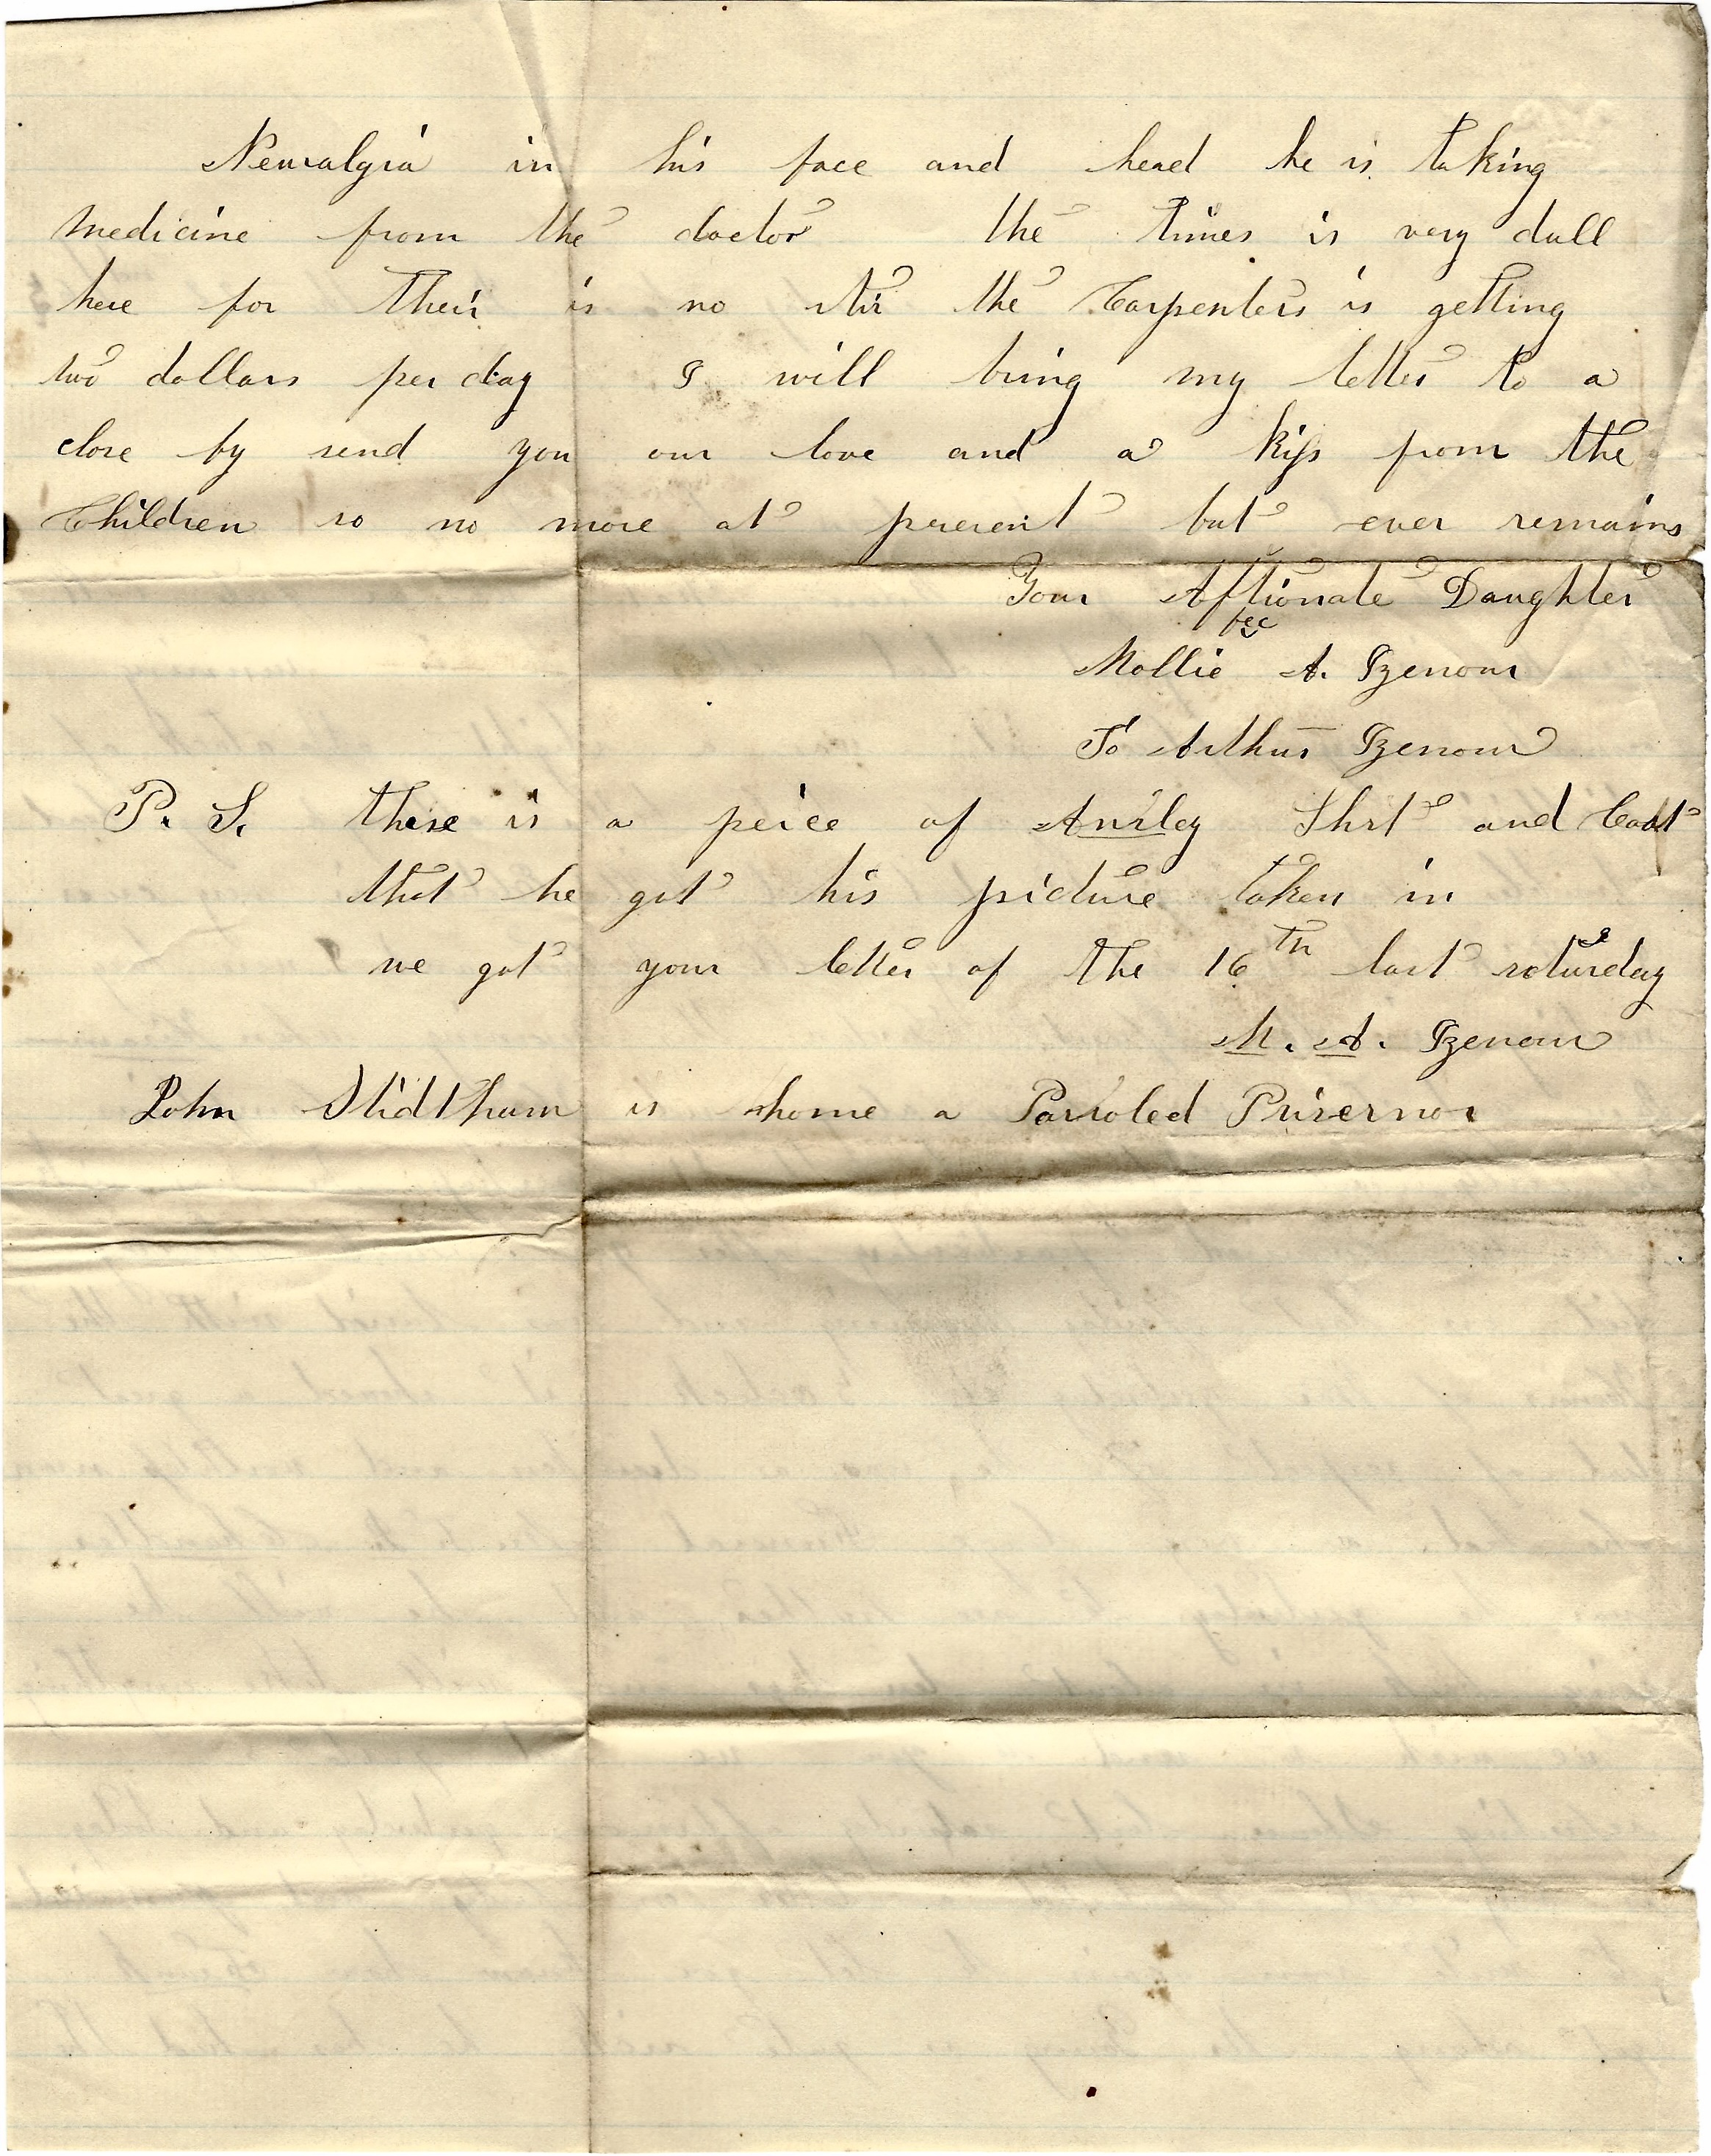 Neuralgia in his face and head he is taking
medicine from the doctor the times is very dull
here for their is no stir the Carpenters is getting
two dollars per day I will bring my letter to a
close by send you our love and a kiss from the
Children so no more at present but ever remains
Your Affectionate Daughter
Mollie A. Izenour
To Arthur Izenour
P. S. there is a peice of Ansley Shrt and Coat
that he got his picture taken in
we got your letter of the 16th last saturday
M. A. Izenour
John Stidtham is home a Parroled Prisernor